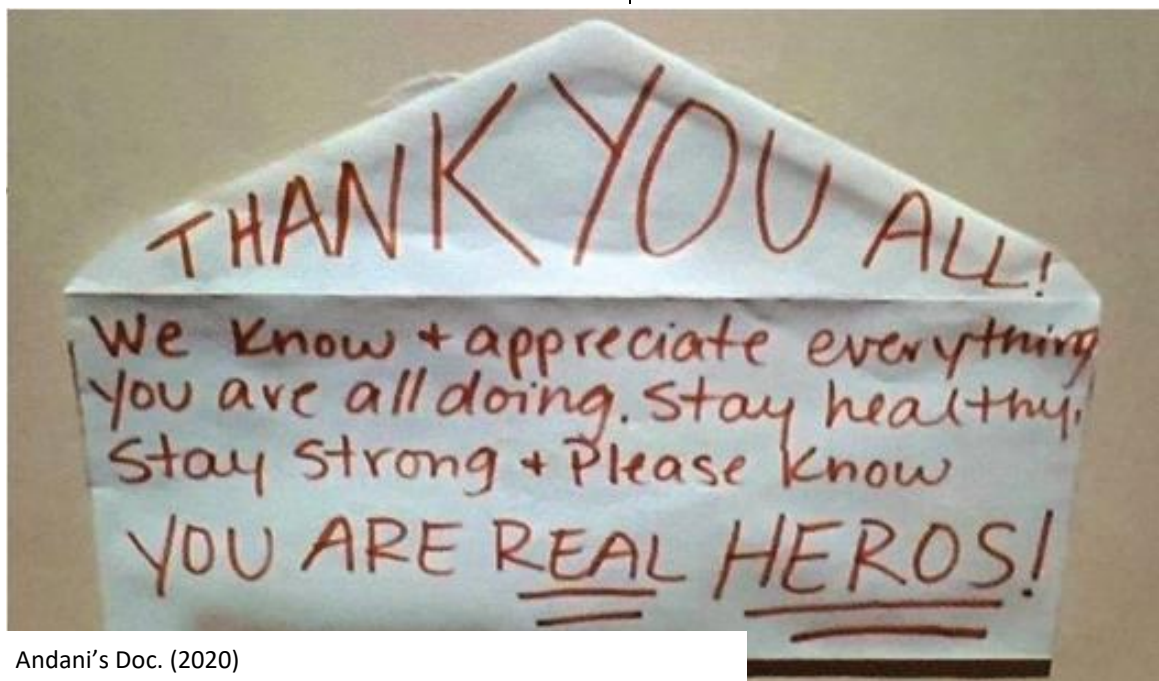 THANK YOU ALL!
We know + appreciate everything
you are all doing. Stay healthy,
Stay strong + Please know
YOU ARE REAL HEROS!
Andani's Doc. (2020)